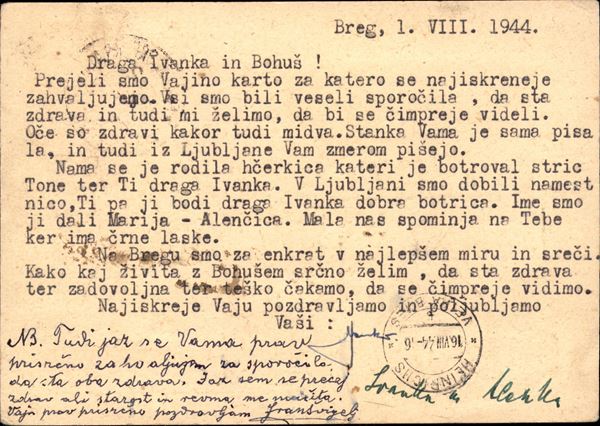 Breg, 1. VIII. 1944.
Draga Ivanka in Bohuš !
Prejeli smo Vajino karto za katero se najiskreneje
zahvaljujemo. Vsi smo bili veseli sporočila , da sta
zdrava in tudi mi želimo, da bi se čimpreje videli.
Oče so zdravi kakor tudi midva. Stanka Vama je sama pisa
la, in tudi iz Ljubljane Vam zmerom pišejo.
Nama se je rodila hčerkica kateri je botroval stric
Tone ter Ti draga Ivanka. V Ljubljani smo dobili namest
nico, Ti pa ji bodi draga Ivanka dobra botrica. Ime smo
ji dali Marija - Alenčica. Mala nas spominja na Tebe
ker ima črne laske.
Na Bregu smo za enkrat v najlepšem miru in sreči.
Kako kaj živita z Bohušem srčno želim , da sta zdrava
ter zadovoljna ter teško čakamo, da se čimpreje vidimo.
Najiskreje Vaju pozdravljamo in poljubljamo
Vaši :
NB. Tudi jaz se Vama prav
prisrčno zahvaljujem za sporočilo
da sta oba zdrava. Jaz sem se precej
zdrav ali starost in revma me
Vaju prav prisrčno pozdravljam
Stanka in Alenka
16.VIII.44-16